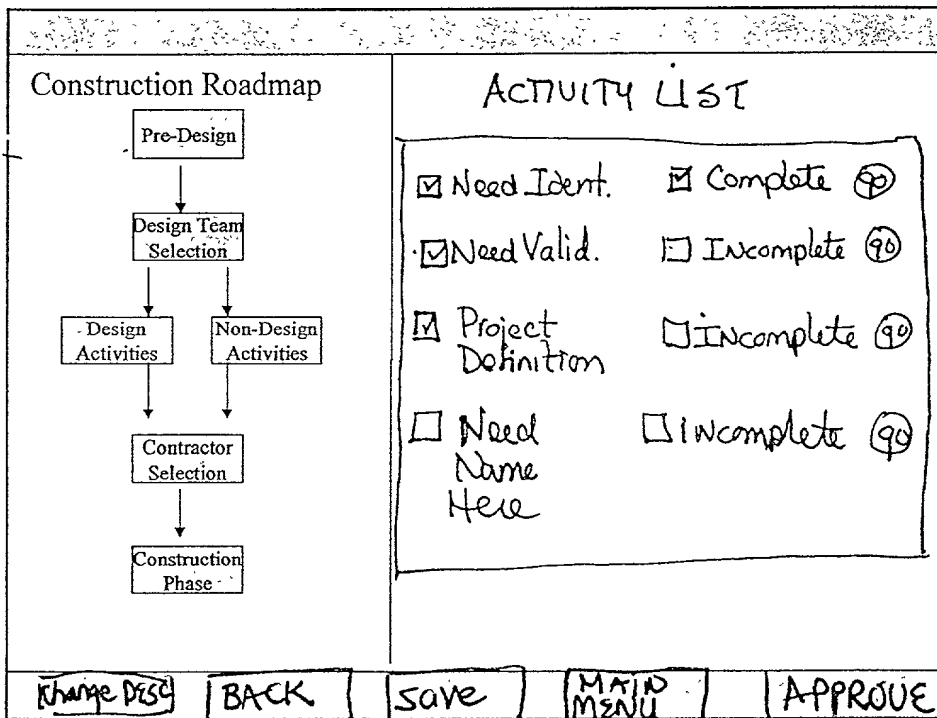 Construction Roadmap
Pre-Design
Design Team
Selection
Design
Activities
Non-Design
Activities
Contractor
Selection
Construction
Phase
ACTIVITY LIST
Need Ident. Complete go
Need Valid. Incomplete go
Project
Definition
Incomplete go
Need
Name
Here
Incomplete go
Change DESC BACK save MAIN
MENU
APPROVE